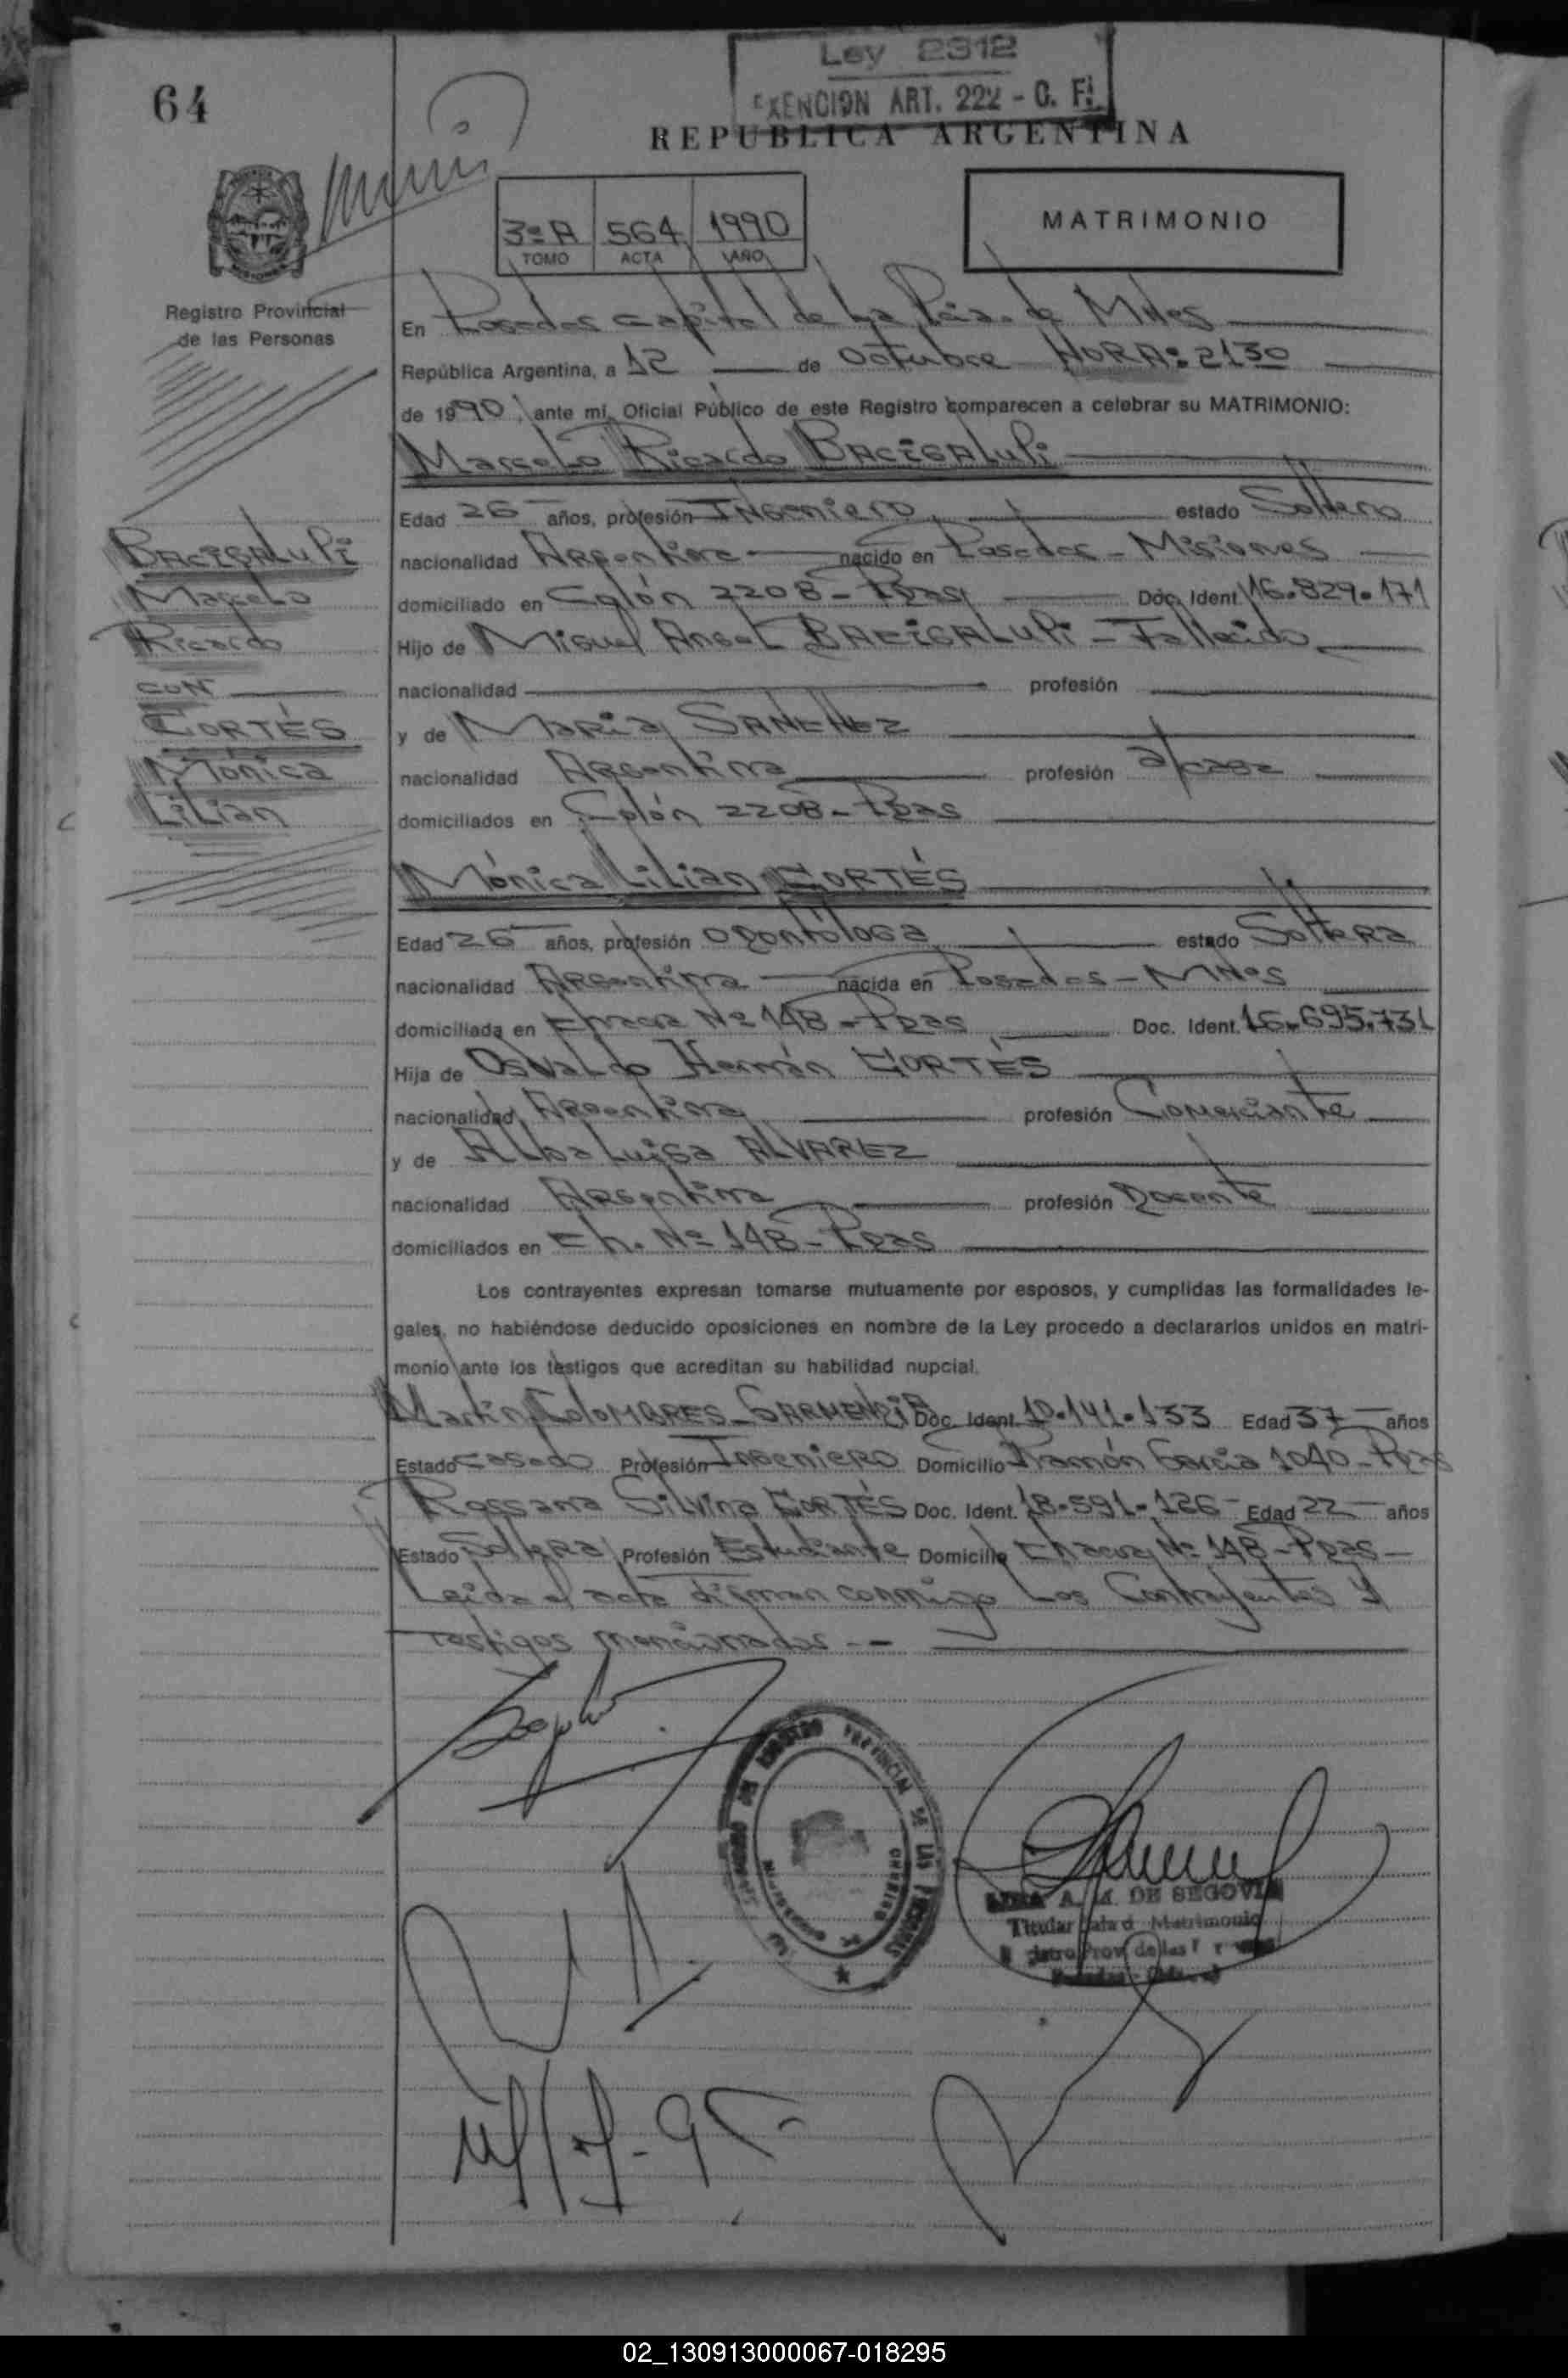 Ley 2312
EXENCION ART. 222 - C. F.
64
REPUBLICA ARGENTINA
3º A 564 1990
TOMO ACTA AÑO
MATRIMONIO
Registro Provincial
de las Personas
En Posadas Capital de La Pcia. de Mnes
República Argentina, a 12 de Octubre HORA: 2130
de 1990, ante mí, Oficial Público de este Registro comparecen a celebrar su MATRIMONIO:
Marcelo Ricardo BACIGALUPI
Edad 26 años, profesión Ingeniero estado Soltero
BACIGALUPI
Marcelo
Ricardo
CON
CORTÉS
Mónica
Lilian
nacionalidad Argentina nacido en Posadas - Misiones
domiciliado en Colón 2208 - Pdas Doc. Ident. 16.829.171
Hijo de Miguel Angel BACIGALUPI - Fallecido
nacionalidad profesión
y de Maria SANCHEZ
nacionalidad Argentina profesión a/casa
domiciliados en Colón 2208 - Pdas
Mónica Lilian CORTÉS
Edad 26 años, profesión Odontóloga estado Soltera
nacionalidad Argentina nacida en Posadas - Mnes
domiciliada en Chacra Nº 148 - Pdas Doc. Ident. 16.695.731
Hija de Osvaldo Hernán CORTÉS
nacionalidad Argentina profesión Comerciante
y de Alba Luisa ALVAREZ
nacionalidad Argentina profesión Docente
domiciliados en Ch. Nº 148 - Pdas
Los contrayentes expresan tomarse mutuamente por esposos, y cumplidas las formalidades le-
gales, no habiéndose deducido oposiciones en nombre de la Ley procedo a declararlos unidos en matri-
monio ante los testigos que acreditan su habilidad nupcial.
Martin COLOMBRES GARMENDIA Doc. Ident. 10.141.133 Edad 37 años
Estado Casado Profesión Ingeniero Domicilio Ramón García 1040 - Pdas
Rossana Silvina CORTÉS Doc. Ident. 18.591.126 Edad 22 años
Estado Soltera Profesión Estudiante Domicilio Chacra Nº 148 - Pdas -
Leida el acta firman conmigo Los Contrayentes y
Testigos mencionados. -
REGISTRO PROVINCIAL DE LAS PERSONAS
A. M. DE SEGOVIA
Titular Sala d Matrimonio
02_130913000067-018295